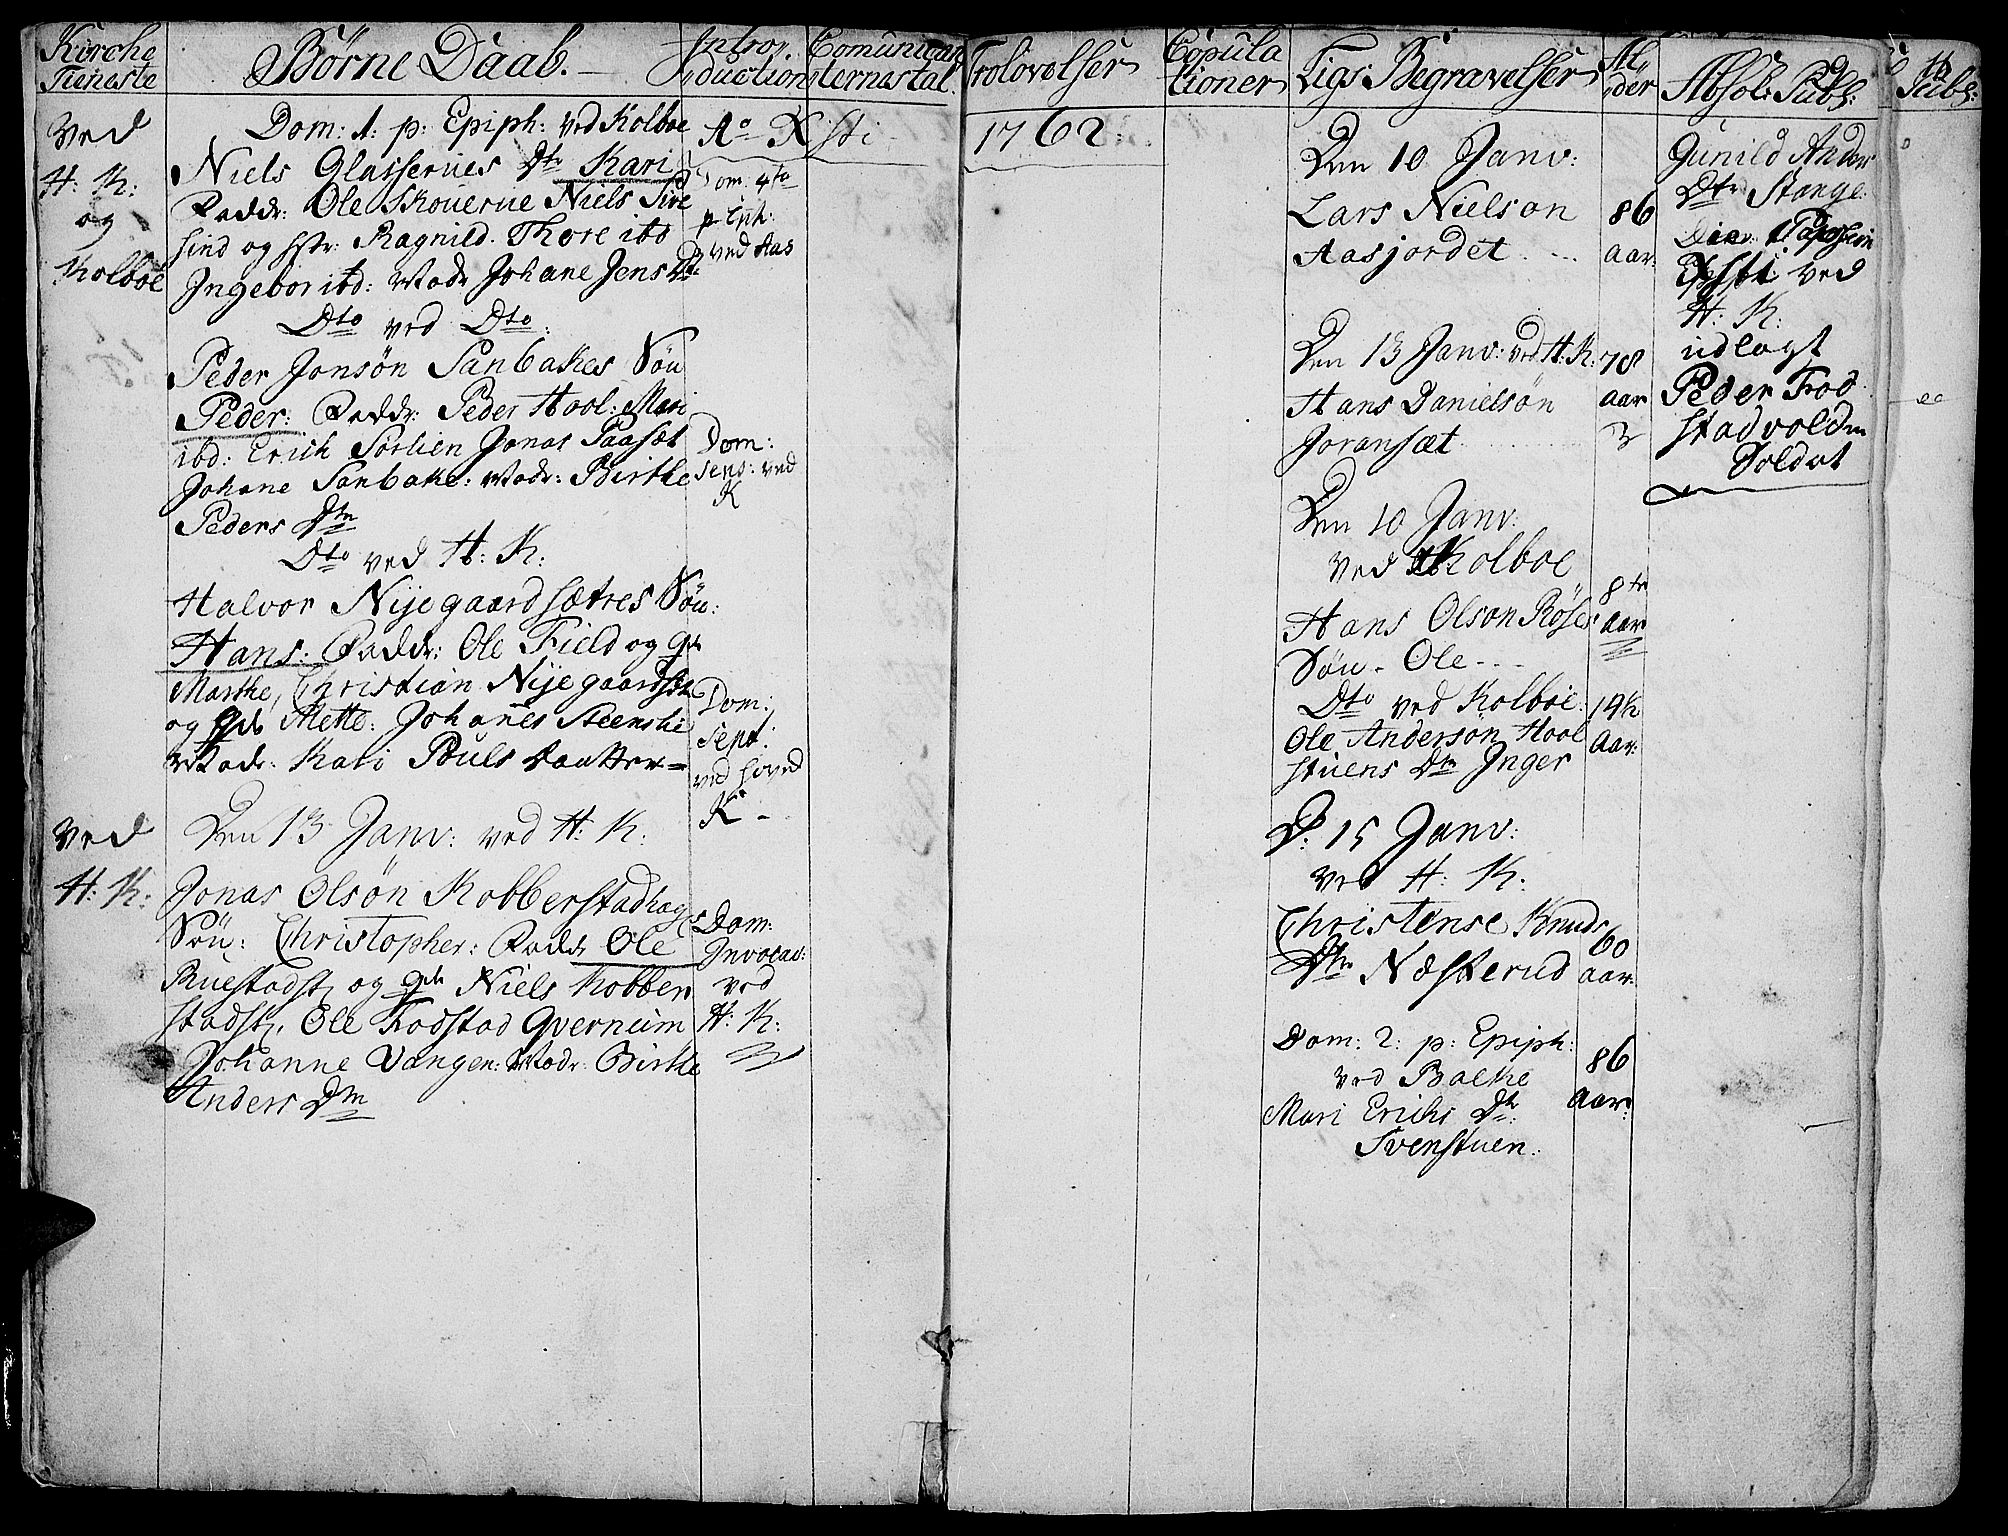 Kirche
Tieneste
Børne Daab.
Intro
duction
Comunican
ternes tal.
Trolovelser
Copula
tioner
Ligs: Begravelser
Al
der
Absol: Publ:
Publ:
Ao Xsti 1762:
Ved
H: K:
og
Kolboe
Dom: 1: p: Epiph: ved Kolboe
Niels Glassernes Dtr Kari
Faddr: Ole Skouerne Niels Sire
sind og hstr: Ragnild. Thore ibd
Ingebor ibd: Modr Johane Jens Dtr
Dto ved Dto:
Peder Jonsøn Sanbakes Søn
Peder: Faddr: Peder Hool: Mari
ibd: Erich Sørlien Jonas Paasæt
Johane Sanbake: Modr: Birthe
Peders Dtr
Dto ved H: K:
Halvor Nijegaardsætres Søn:
Hans: Faddr: Ole Field og qde
Marthe, Christian Nijegaards
og qde Mette: Johanes Steenske
Modr: Kari Pouls Daatter
Ved
H: K:
Den 13 Janv: ved H: K:
Jonas Olsøn Kobberstadhages
Søn: Christopher: Faddr Ole
Ruestads og qde Niels Kobber
stads, Ole Fodstad Qvernum
Johanne Vangen: Modr: Birthe
Anders Dtr
Dom: 4ta
p Eph:
ved Aas
Dom:
sens: ved
K
Dom:
Sept:
ved hoved
K -
Dom:
Invocav:
ved
H: K:
Den 10 Janv:
Lars Nielsøn 86
Aasjordet aar:
Den 13 Janv: ved H: K: 78
Hans Danielsøn aar
Joransæt
Den 10 Janv:
ved Kolboe
Hans Olson Røses 8te
Søn - Ole - - - aar
Dto ved Kolboe: 14
Ole Andersøn Hool aar:
stuens Dtr Inger
D: 15 Janv:
ved H: K:
Christense Knuds 60
Dtr Næsterud aar:
Dom: 2: p: Epiph: 86
ved Balke
Mari Erichs Dtr: aar:
Svenstuen:
Gunild Anders
Dtr Stange
ved
H: K:
udlagt
Peder Fod
stadvolden
Soldat